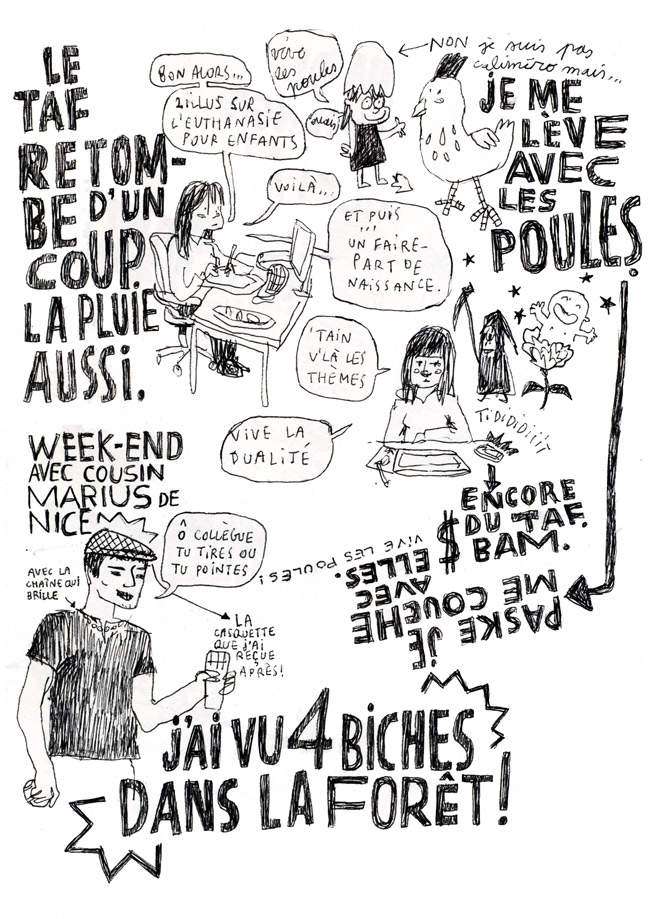 LE
TAF
RETOM-
BE D'UN
COUP.
LA PLUIE
AUSSI.
BON ALORS...
2 ILLUS SUR
L'EUTHANASIE
POUR ENFANTS
VOILÀ...
ET PUIS
...
UN FAIRE-
PART DE
NAISSANCE.
vive
les
poules
ouais
NON je suis pas
caliméro mais...
JE ME
LÈVE
AVEC
LES
POULES.
'TAIN
V'LÀ LES
THÈMES
VIVE LA
DUALITÉ
TIDIDIDIIII
ENCORE
DU TAF.
BAM.
$
PASKE JE
ME COUCHE
AVEC
ELLES.
VIVE LES POULES!
WEEK-END
AVEC COUSIN
MARIUS DE
NICE
Ô COLLÈGUE
TU TIRES OU
TU POINTES
AVEC LA
CHAÎNE QUI
BRILLE
LA
CASQUETTE
QUE J'AI
REÇUE
APRÈS!
J'AI VU 4 BICHES
DANS LA FORÊT!